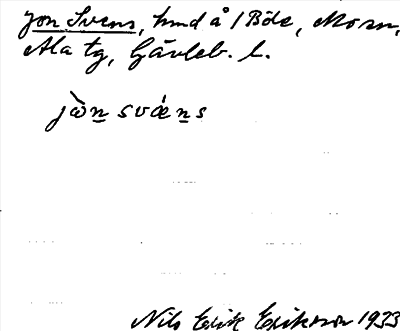 Jon Svens, hmd å 1 Böle, Mo sn,
Ala tg, Gävleb. l.
jὼn svǽns
Nils Erik Eriksson 1933